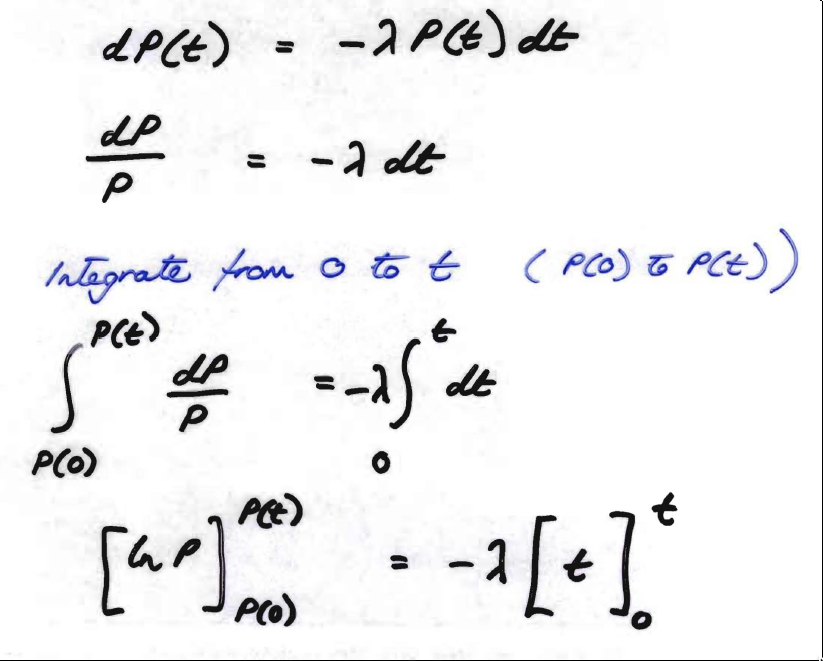 dP(t) = -λ P(t) dt
dP/P = -λ dt
Integrate from 0 to t ( P(0) to P(t) )
∫_{P(0)}^{P(t)} dP/P = -λ ∫_0^t dt
[ln P]_{P(0)}^{P(t)} = -λ [t]_0^t